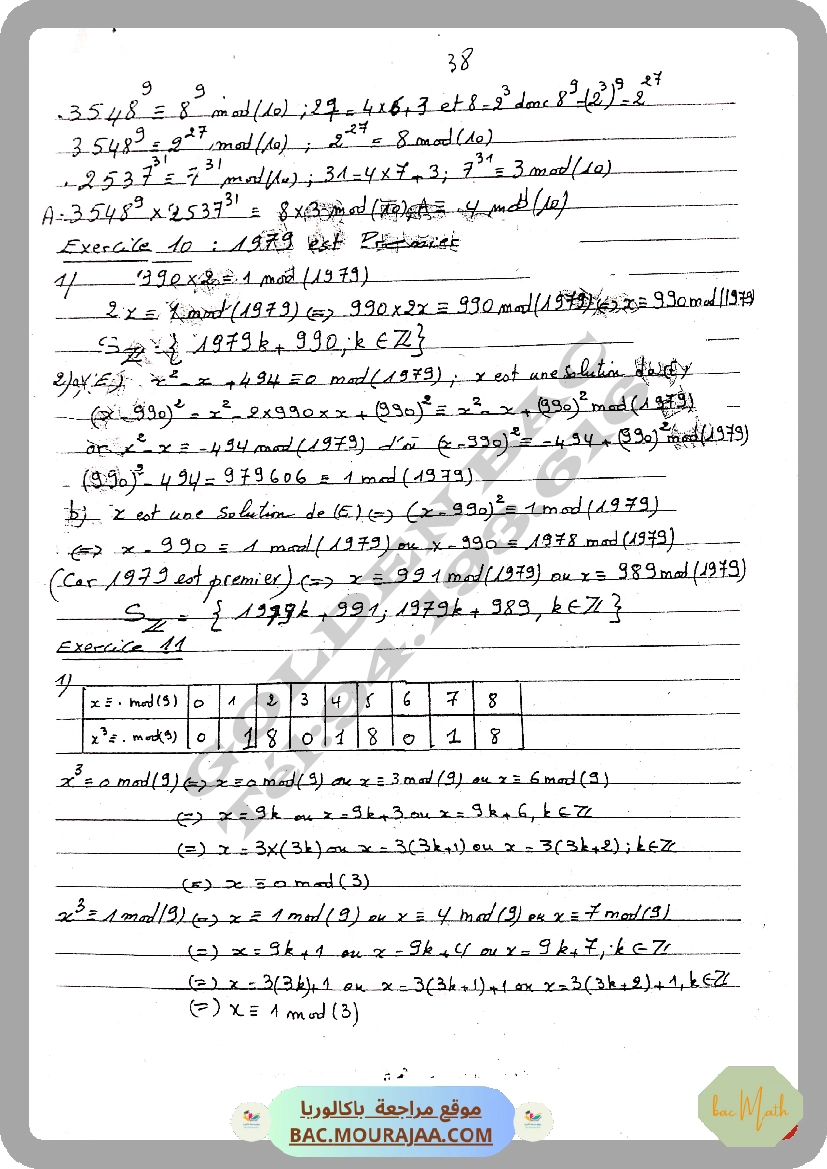 38
.3548⁹ ≡ 8⁹ mod(10) ; 27 = 4×6+3 et 8=2³ donc 8⁹=(2³)⁹=2²⁷
3548⁹ ≡ 2²⁷ mod(10) ; 2²⁷ ≡ 8 mod(10)
.2537³¹ ≡ 7³¹ mod(10) ; 31=4×7+3 ; 7³¹ ≡ 3 mod(10)
A=3548⁹ × 2537³¹ ≡ 8×3 mod(10), A ≡ 4 mod(10)
Exercice 10 : 1979 est Premier
1) 990×2 ≡ 1 mod(1979)
2x ≡ 1 mod(1979) (=) 990×2x ≡ 990 mod(1979) (=) x ≡ 990 mod(1979)
S_ℤ = { 1979k + 990, k ∈ ℤ }
2)a)(E) x² - x + 494 ≡ 0 mod(1979) ; x est une solution de (E)
(x-990)² = x² - 2×990×x + (990)² ≡ x² - x + (990)² mod(1979)
or x² - x ≡ -494 mod(1979) d'où (x-990)² ≡ -494 + (990)² mod(1979)
(990)² - 494 = 979606 ≡ 1 mod(1979)
b) x est une solution de (E) (=) (x-990)² ≡ 1 mod(1979)
(=) x-990 ≡ 1 mod(1979) ou x-990 ≡ 1978 mod(1979)
(Car 1979 est premier) (=) x ≡ 991 mod(1979) ou x ≡ 989 mod(1979)
S_ℤ = { 1979k + 991 ; 1979k + 989, k ∈ ℤ }
Exercice 11
1)
x ≡ . mod(9) 0 1 2 3 4 5 6 7 8
x³ ≡ . mod(9) 0 1 8 0 1 8 0 1 8
x³ ≡ 0 mod(9) (=) x ≡ 0 mod(9) ou x ≡ 3 mod(9) ou x ≡ 6 mod(9)
(=) x = 9k ou x = 9k+3 ou x = 9k+6, k ∈ ℤ
(=) x = 3×(3k) ou x = 3(3k+1) ou x = 3(3k+2) ; k ∈ ℤ
(=) x ≡ 0 mod(3)
x³ ≡ 1 mod(9) (=) x ≡ 1 mod(9) ou x ≡ 4 mod(9) ou x ≡ 7 mod(9)
(=) x = 9k+1 ou x = 9k+4 ou x = 9k+7, k ∈ ℤ
(=) x = 3(3k)+1 ou x = 3(3k+1)+1 ou x = 3(3k+2)+1, k ∈ ℤ
(=) x ≡ 1 mod(3)
GOLDEN BAC
موقع مراجعة باكالوريا
BAC.MOURAJAA.COM
bac Math